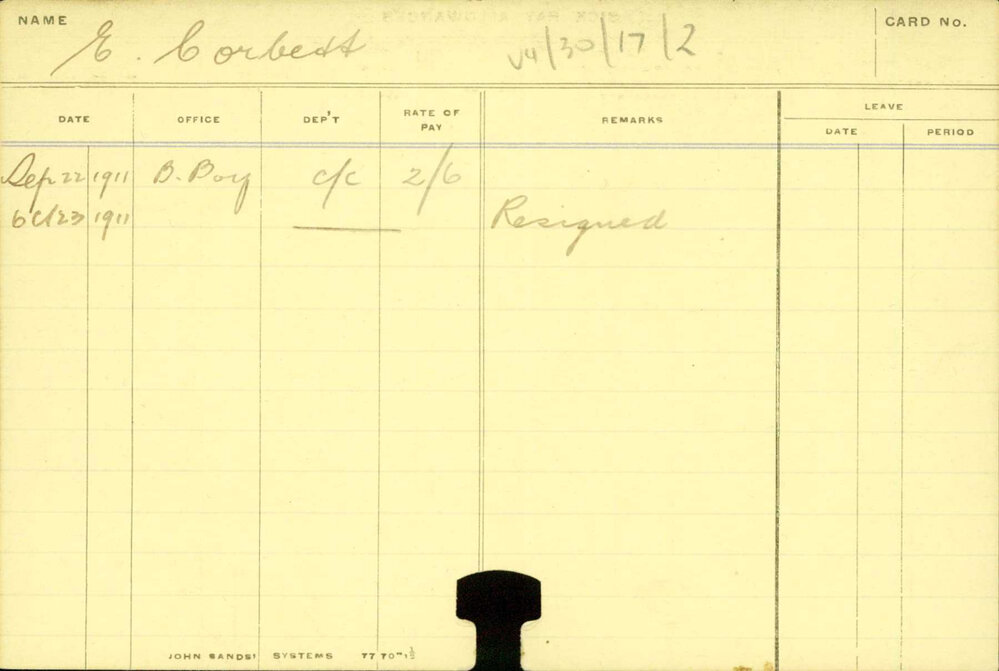 NAME E. Corbett V4/30/17/2 CARD No.
LEAVE
DATE OFFICE DEP'T RATE OF PAY REMARKS DATE PERIOD
Sep 22 1911 B. Boy c/c 2/6
Oct 23 1911 Resigned
JOHN SANDS' SYSTEMS